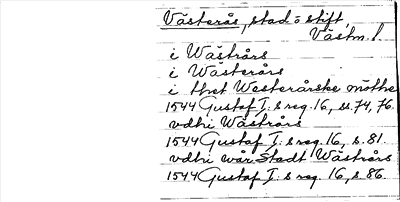 Västerås, stad o stift,
Västm. l.
i Wästrårs
i Wästerårs
i thet Westerårske möthe
1544 Gustaf I:s reg. 16, ss. 74, 76.
vdhi Wästrårs
1544 Gustaf I:s reg. 16, s. 81.
vdhi wår Stadt Wästrårs
1544 Gustaf I:s reg. 16, s. 86.